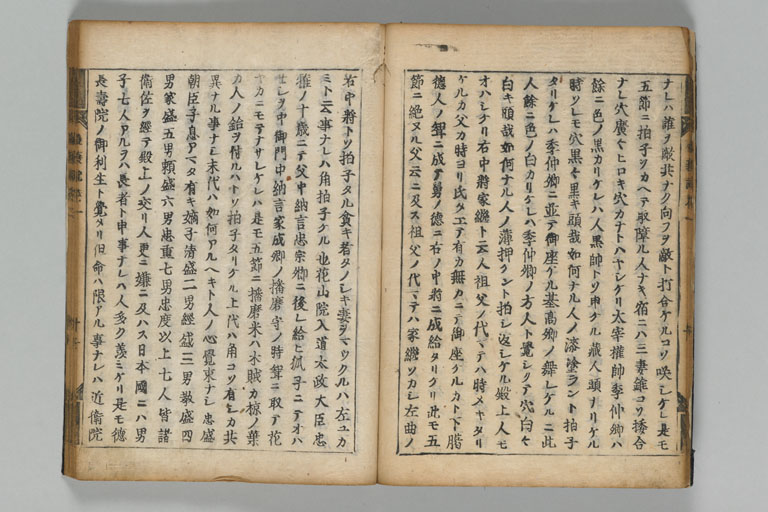 ナレハ誰ヲ敵共ナク向フヲ敵ト打合ケルコソ咲シケレ是モ
五節ニ拍子ヲカヘテ取障ル人ナキ宿ニハ三妻錐コソ揉合
ナレ穴廣ヒロキ穴カナトハヤシケリ太宰權帥季仲卿ハ
餘ニ色ノ黒カリケレハ人黒帥トソ申ケル蔵人頭ナリケル
時ソレモ穴黒々黒キ頭哉如何ナル人ノ漆塗ラント拍子
タリケレハ季仲卿ニ並テ御座ケル基高卿ノ舞レケルニ此
人餘ニ色ノ白カリケレハ季仲卿ノ方人ト覺シクテ穴白々
白キ頭哉如何ナル人ノ薄押ケント拍シ返シケル殿上人モ
オハシケリ右中將家繼ト云人祖父ノ代マテハ時メキタリ
ケルカ父カ時ヨリ氏タエテ有カ無カニテ御座ケルカ下﨟
徳人ノ聟ニ成テ舅ノ徳ニ右ノ中將ニ成給タリケリ此モ五
節ニ絶ヌル父云ニ及ス祖父ノ代マテハ家繼ソカシ左曲ノ
右中將トソ拍子タル貪キ者タノシキ妻ヲマウクルハ左ユカ
ミト云事ナレハ角拍子ケル也花山院入道太政大臣忠
雅ノ十歳ニテ父中納言忠宗卿ニ後レ給ヒ孤子ニテオハ
セシヲ中御門中納言家成卿ノ播磨守ノ時聟ニ取テ花
ヤカニモテナサレケレハ是モ五節ニ播磨米ハ木賊カ椋ノ葉
カ人ノ綺ヲ付ルハトソ拍子タリケル上代ハ角コソ有シカ共
異ナル事ナシ末代ハ如何アルヘキト人ノ心覺束ナシ忠盛
朝臣子息アマタ有キ嫡子清盛二男經盛三男教盛四
男家盛五男頼盛六男忠重七男忠度以上七人皆諸
衛佐ヲ經テ殿上ノ交リ人更ニ嫌ニ及ハス日本國ニハ男
子七人アルヲハ長者ト申事ナレハ人多ク羨ミケリ是モ徳
長壽院ノ御利生ト覺タリ但命ハ限アル事ナレハ近衛院